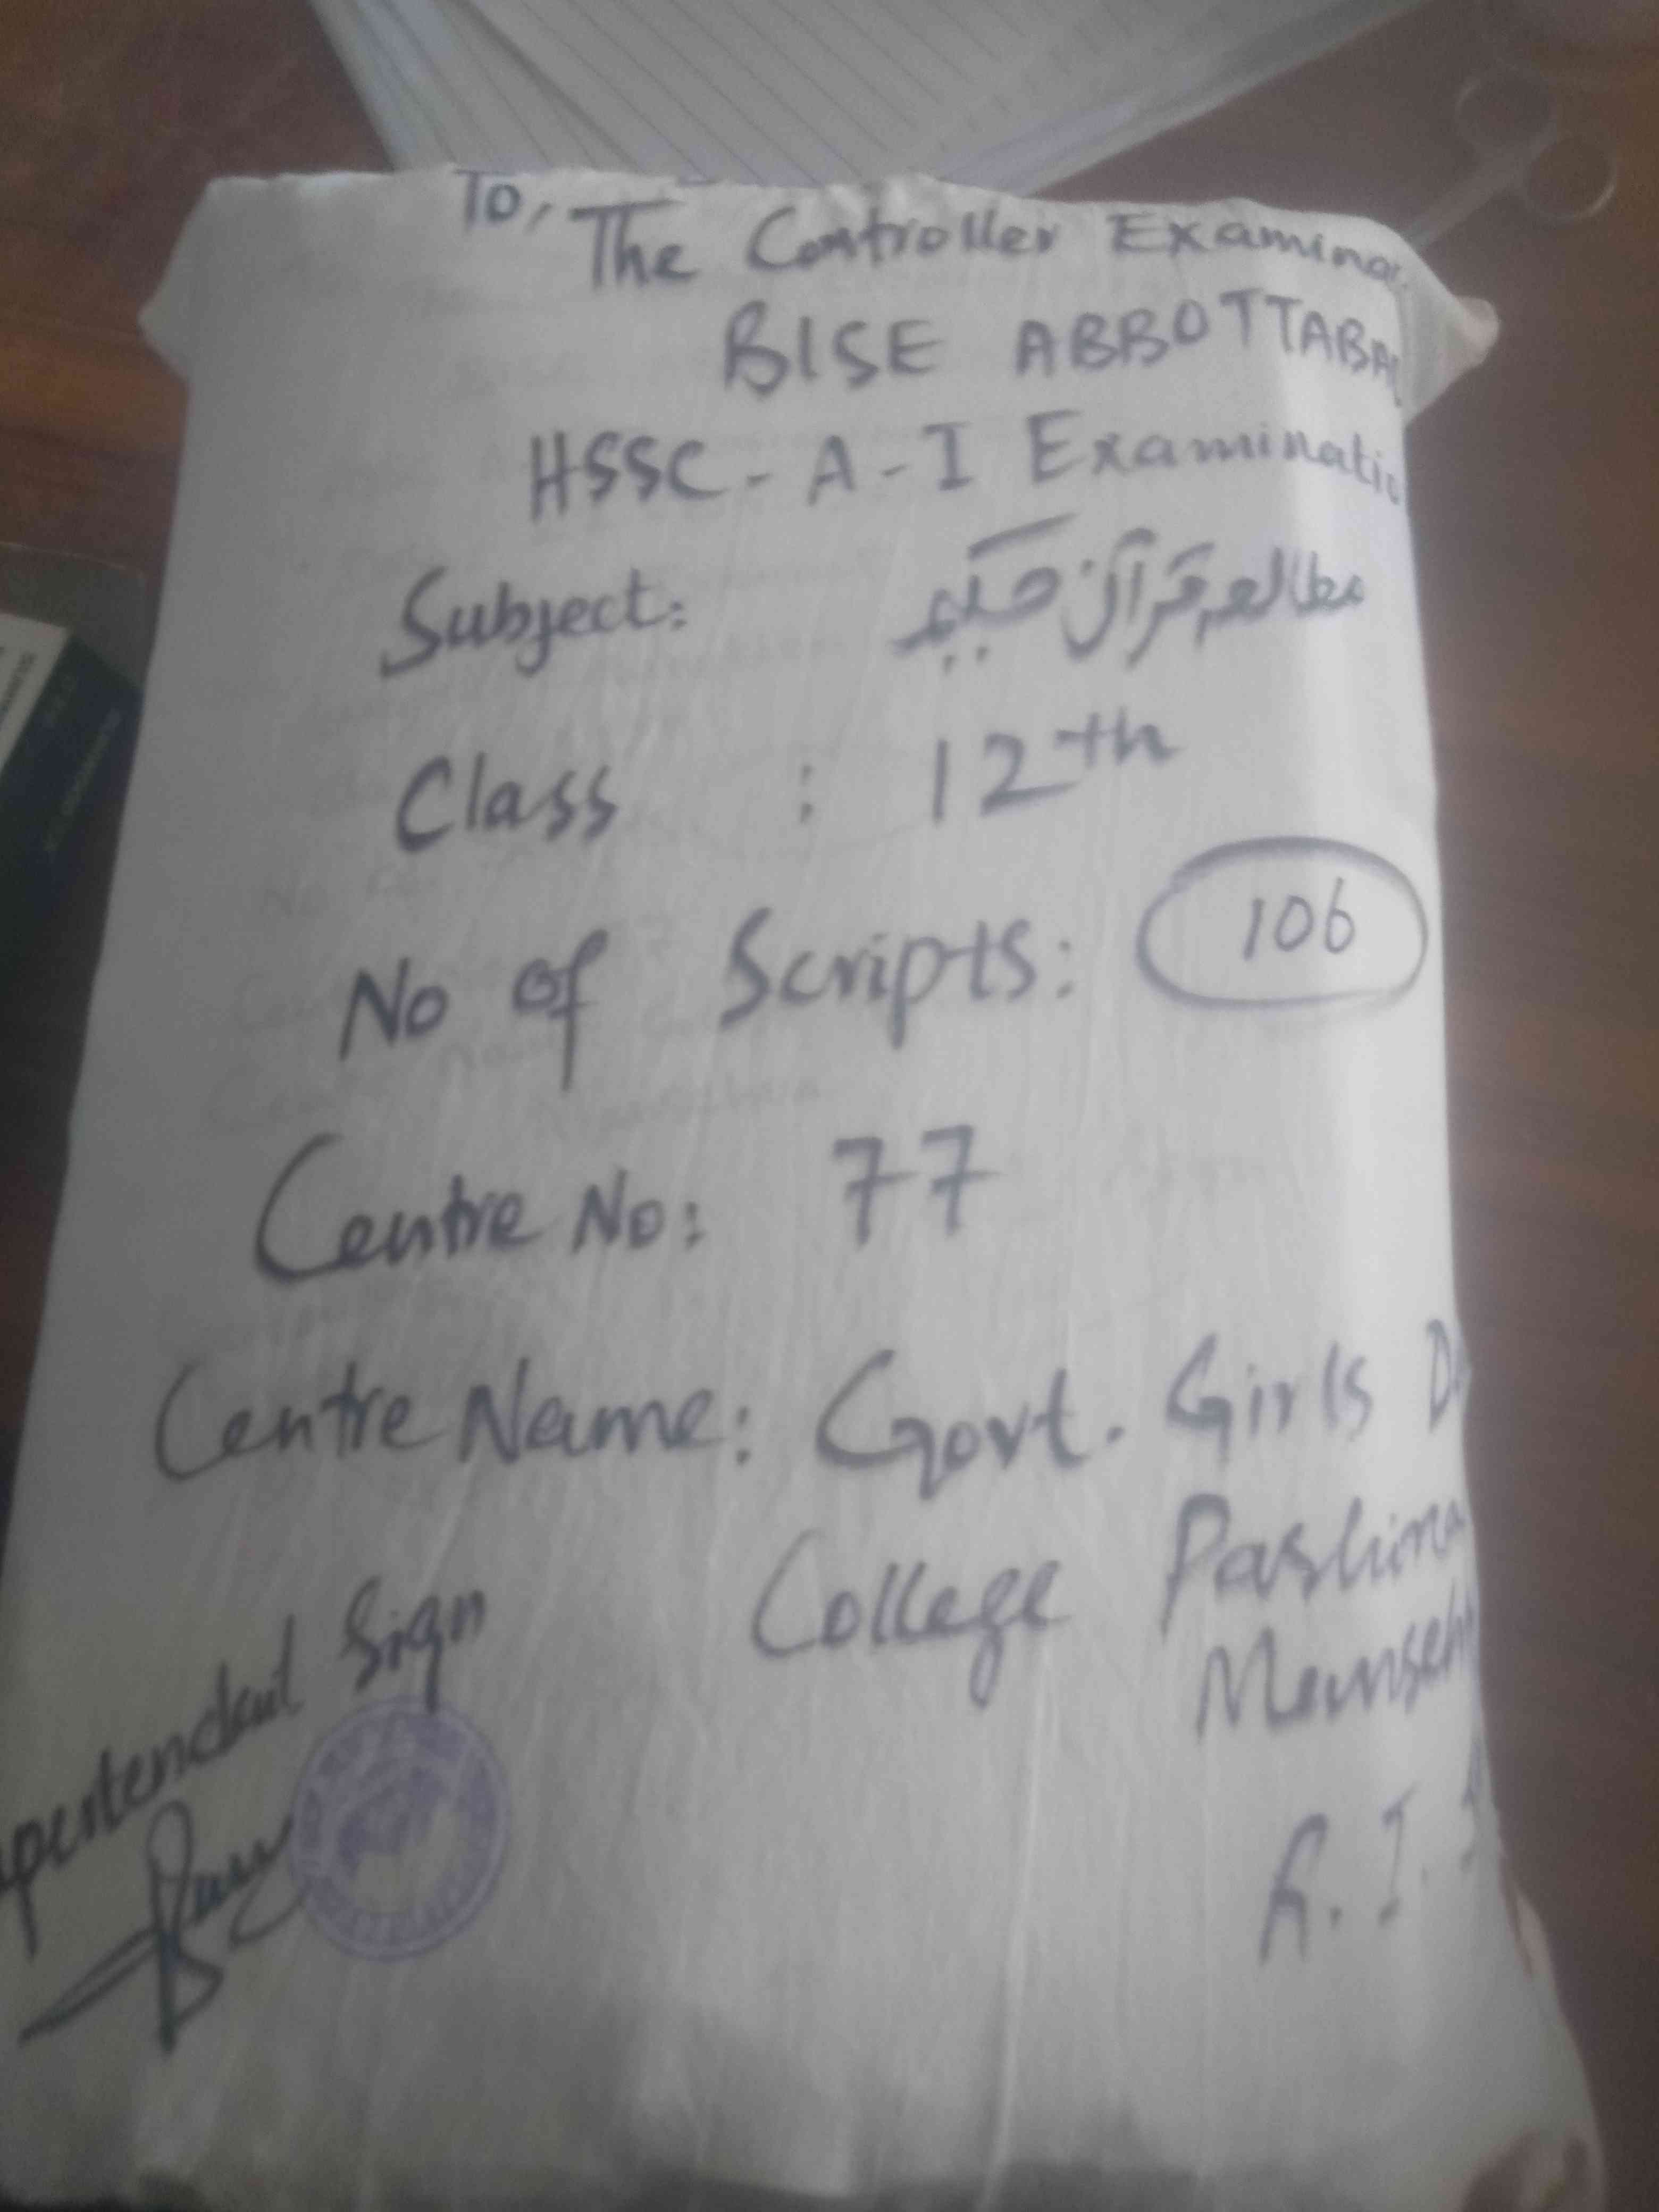 To,
The Controller Examina
BISE ABBOTTABAD
HSSC - A - I Examinatio
Subject: مطالعہ قرآن حکیم
Class : 12th
No of Scripts: 106
Centre No: 77
Centre Name: Govt. Girls D
College
Mansehr
pertendent Sign
A. I.